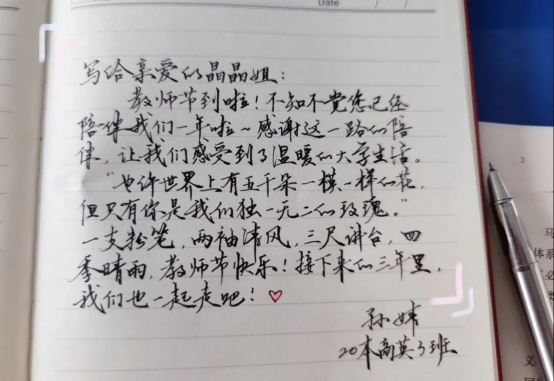 Date
写给亲爱的晶晶姐：
教师节到啦！不知不觉您已经
陪伴我们一年啦～感谢这一路的陪
伴，让我们感受到了温暖的大学生活。
“也许世界上有五千朵一模一样的花，
但只有你是我们独一无二的玫瑰。”
一支粉笔，两袖清风，三尺讲台，四
季晴雨，教师节快乐！接下来的三年里，
我们也一起走吧！
孙
20本商英3班
2